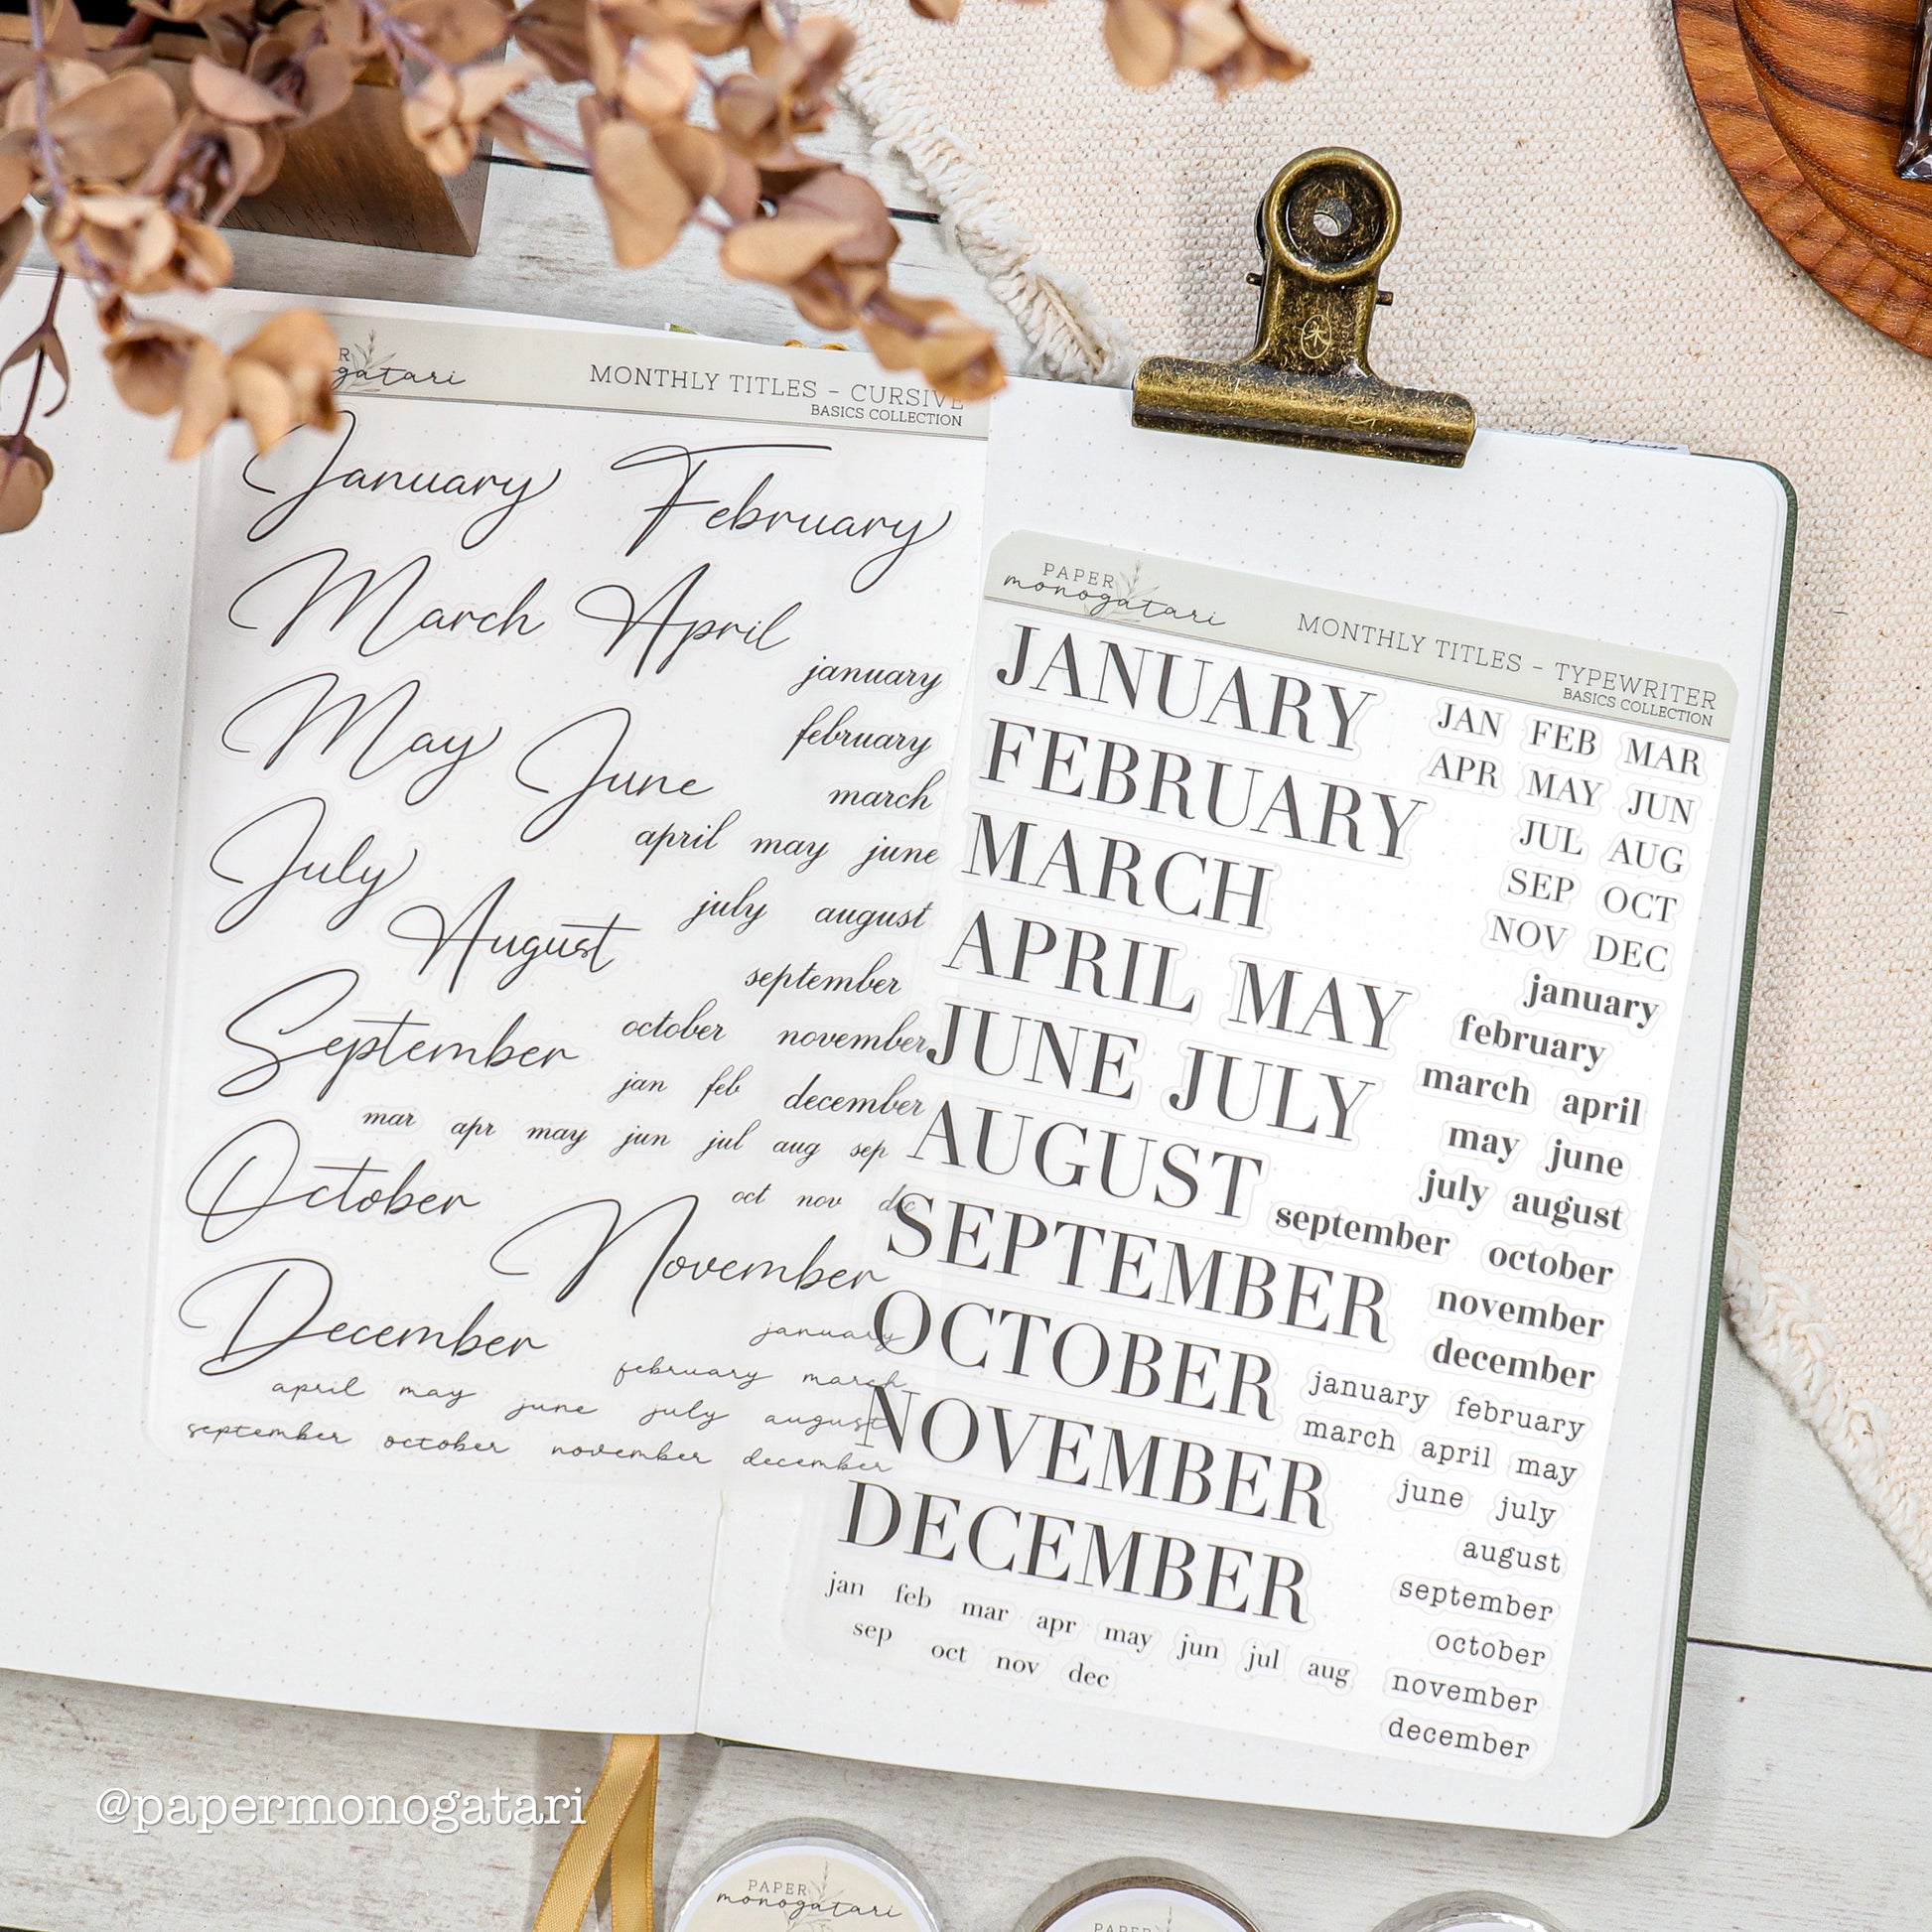 gatari
MONTHLY TITLES – CURSIVE
BASICS COLLECTION
January February
March April
january
May June
february
march
July
april may june
August
july august
september
September
october november
jan feb december
mar apr may jun jul aug sep
October
oct nov dec
November
December
january
february march
april may june july august
september october november december
PAPER
monogatari
MONTHLY TITLES – TYPEWRITER
BASICS COLLECTION
JANUARY
FEBRUARY
MARCH
APRIL MAY
JUNE JULY
AUGUST
SEPTEMBER
OCTOBER
NOVEMBER
DECEMBER
jan feb mar apr may jun jul aug
sep oct nov dec
JAN FEB MAR
APR MAY JUN
JUL AUG
SEP OCT
NOV DEC
january
february
march april
may june
july august
september october
november
december
january february
march april may
june july
august
september
october
november
december
@papermonogatari
PAPER
monogatari
PAPER